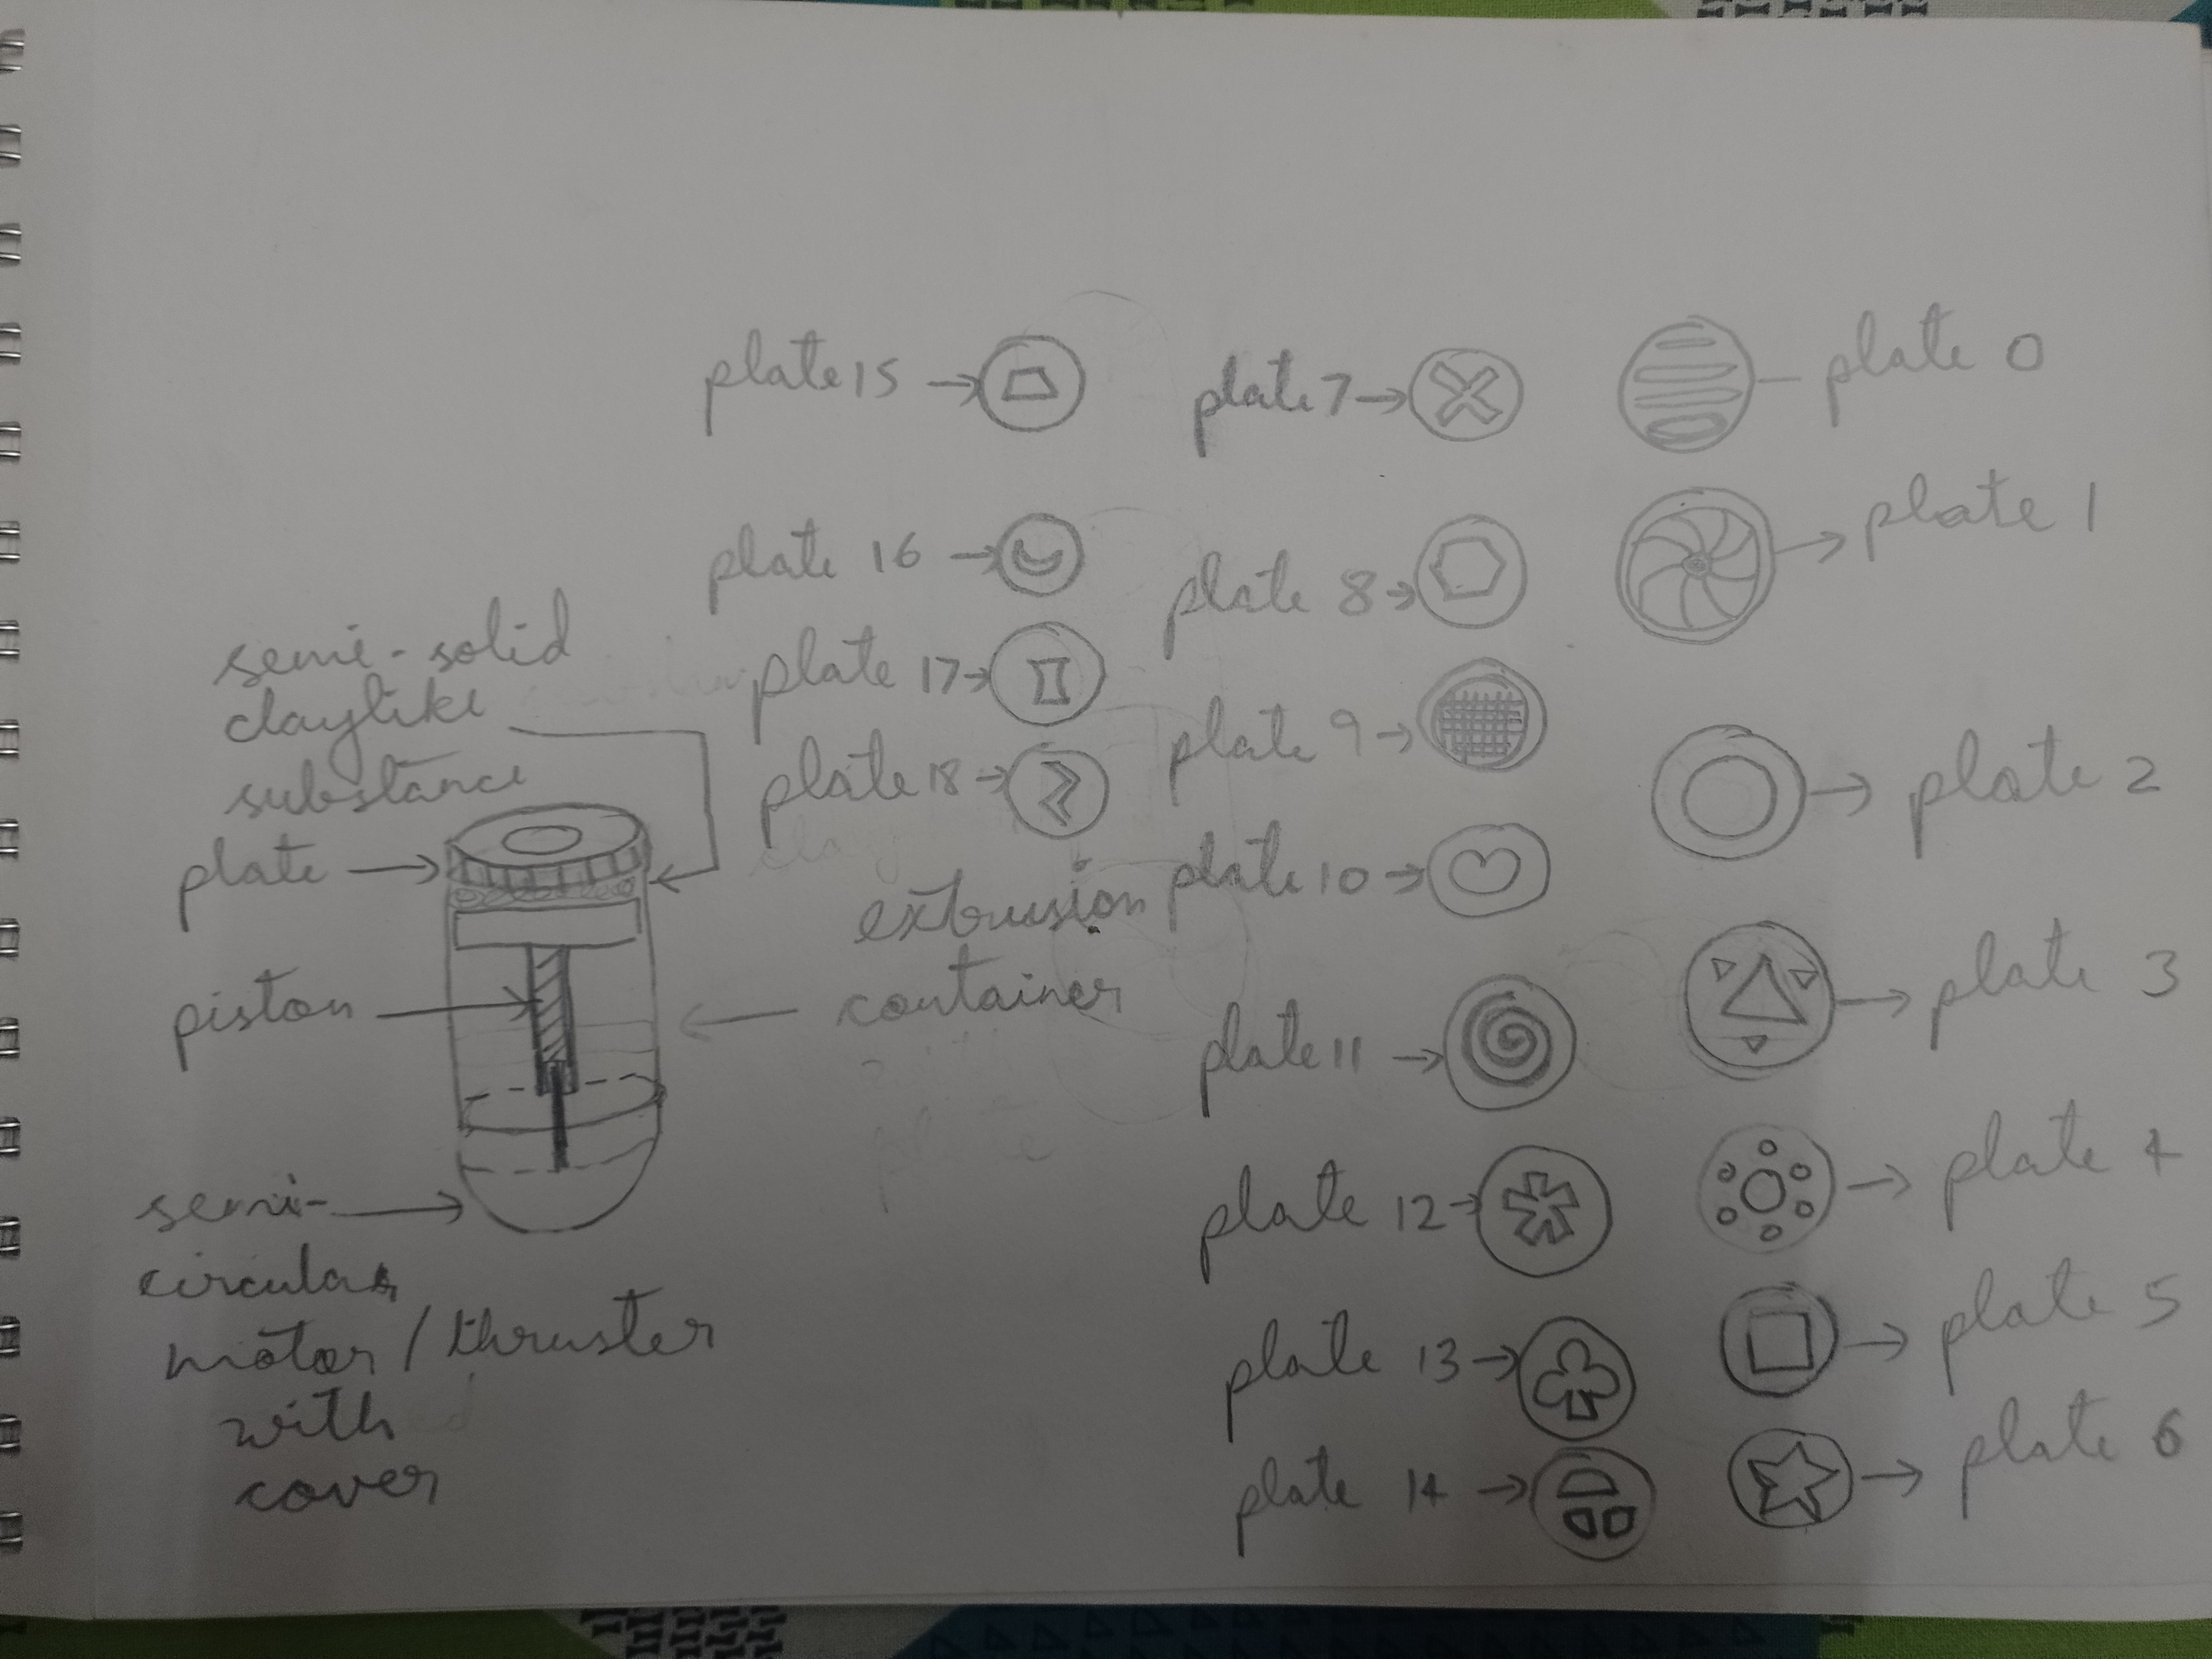 plate 15
plate 16
plate 17
plate 18
plate 7
plate 8
plate 9
plate 10
plate 11
plate 12
plate 13
plate 14
plate 0
plate 1
plate 2
plate 3
plate 4
plate 5
plate 6
semi-solid
claylike
substance
plate
piston
extrusion
container
semi-
circular
motor/thruster
with
cover